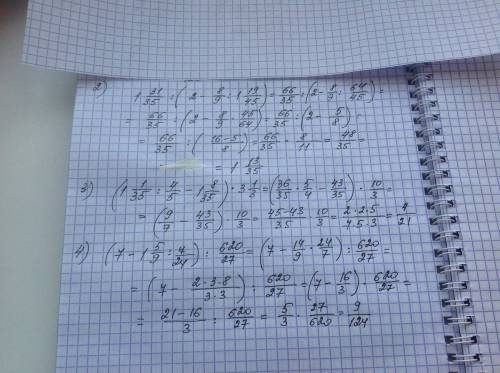 2) 1 31/35 : (2 - 8/9 : 1 19/45) = 66/35 : (2 - 8/9 : 64/45) =
= 66/35 : (2 - 8/9 · 45/64) = 66/35 : (2 - 5/8) =
= 66/35 : (16-5/8) = 66/35 · 8/11 = 48/35 =
= 1 13/35
3) (1 1/35 : 4/5 - 1 8/35) · 3 1/3 = (36/35 · 5/4 - 43/35) · 10/3 =
= (9/7 - 43/35) · 10/3 = 45-43/35 · 10/3 = 2·2·5/4·5·3 = 4/21
4) (7 - 1 5/9 : 4/24) : 620/27 = (7 - 14/9 · 24/7) : 620/27 =
= (7 - 2·3·8/3·3) : 620/27 = (7 - 16/3) · 620/27 =
= 21-16/3 : 620/27 = 5/3 · 27/620 = 9/124